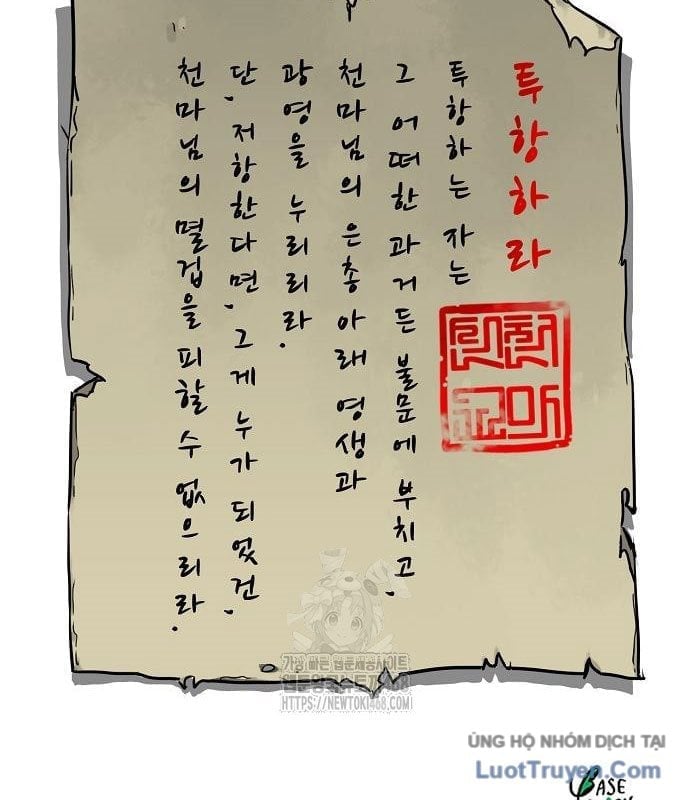 투항하라
투항하는 자는
그 어떠한 과거든 불문에 부치고,
천마님의 은총 아래 영생과
광영을 누리리라.
단, 저항한다면, 그게 누가 되었건,
천마님의 멸겁을 피할 수 없으리라.
가장 빠른 웹툰제공사이트
HTTPS://NEWTOKI468.COM
ỦNG HỘ NHÓM DỊCH TẠI
LuotTruyen.Com
BASE